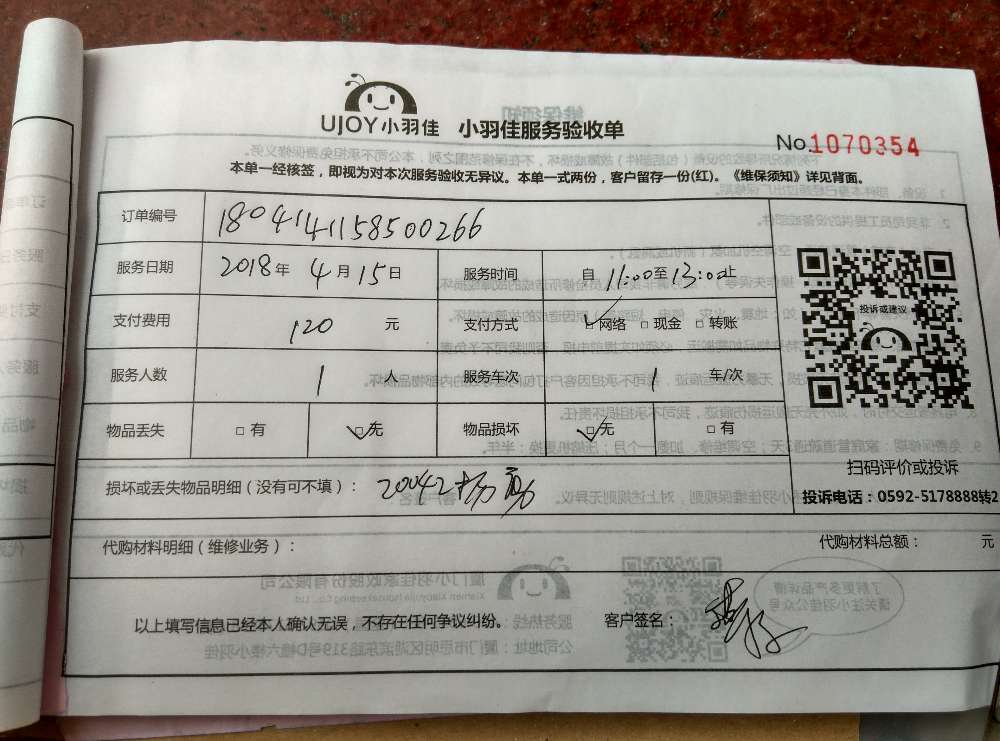 UJOY小羽佳 小羽佳服务验收单
No.1070354
本单一经核签，即视为对本次服务验收无异议。本单一式两份，客户留存一份(红)。《维保须知》详见背面。
订单编号 1804141158500266
服务日期 2018年 4月15日 服务时间 自 11:00至13:00止
支付费用 120 元 支付方式 网络 现金 转账
投诉或建议
服务人数 1 人 服务车次 1 车/次
物品丢失 有 无 物品损坏 无 有
扫码评价或投诉
损坏或丢失物品明细（没有可不填）： 20042杨勇
投诉电话：0592-5178888转2
代购材料明细（维修业务）： 代购材料总额： 元
以上填写信息已经本人确认无误，不存在任何争议纠纷。 客户签名：